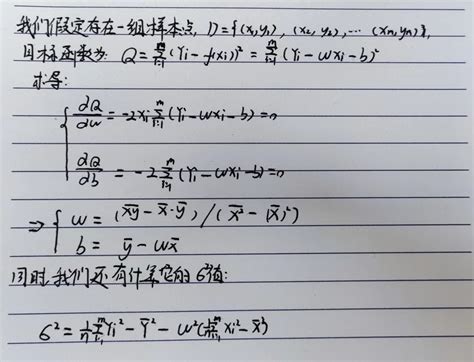 我们假定存在一组样本点, D={(x₁,y₁), (x₂,y₂), … (xₘ,yₙ)},
目标函数为: Q = Σᵢ₌₁ᵐ (Yᵢ - f(xᵢ))² = Σᵢ₌₁ᵐ (Yᵢ - wxᵢ - b)²
求导:
∂Q/∂w = -2xᵢ Σᵢ₌₁ᵐ (Yᵢ - wxᵢ - b) = 0
∂Q/∂b = -2 Σᵢ₌₁ᵐ (Yᵢ - wxᵢ - b) = 0
⇒ { w = (x̅y̅ - x̅·y̅) / (x̅² - (x̅)²)
b = y̅ - wx̅
同时,我们还有计算的 б²值:
б² = 1/n Σᵢ₌₁ᵐ Yᵢ² - Y̅² - w²( Σ xᵢ² - x̅²)